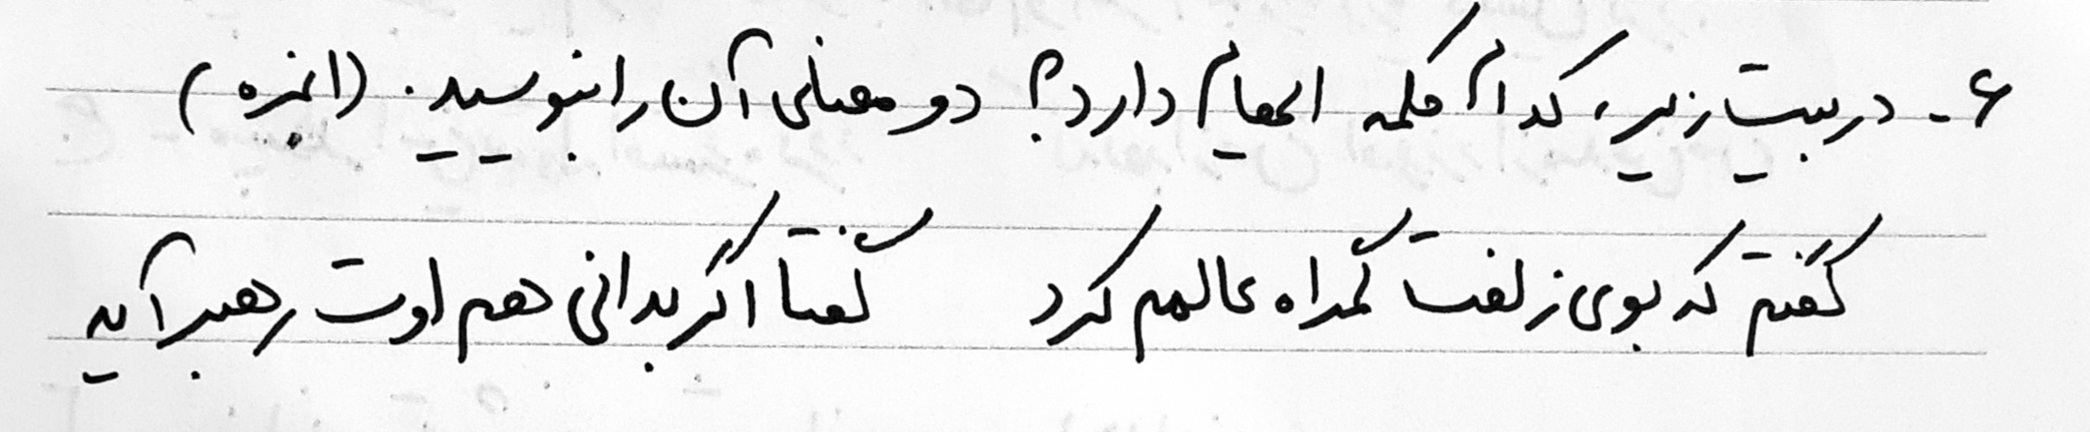 ۶- در بیت زیر، کدام کلمه ایهام دارد؟ دو معنی آن را بنویسید. (انمره)
گفتم که بوی زلفت گمراه عالمم کرد گفتا اگر بدانی هم اوت رهبر آید